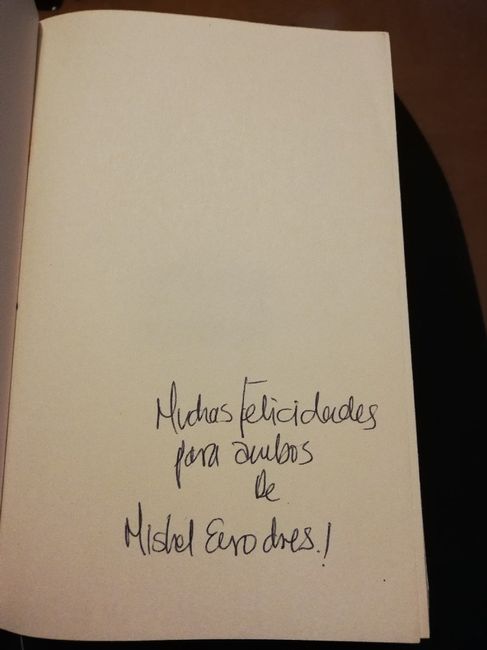 Muchas felicidades
para ambos
De
Mishel